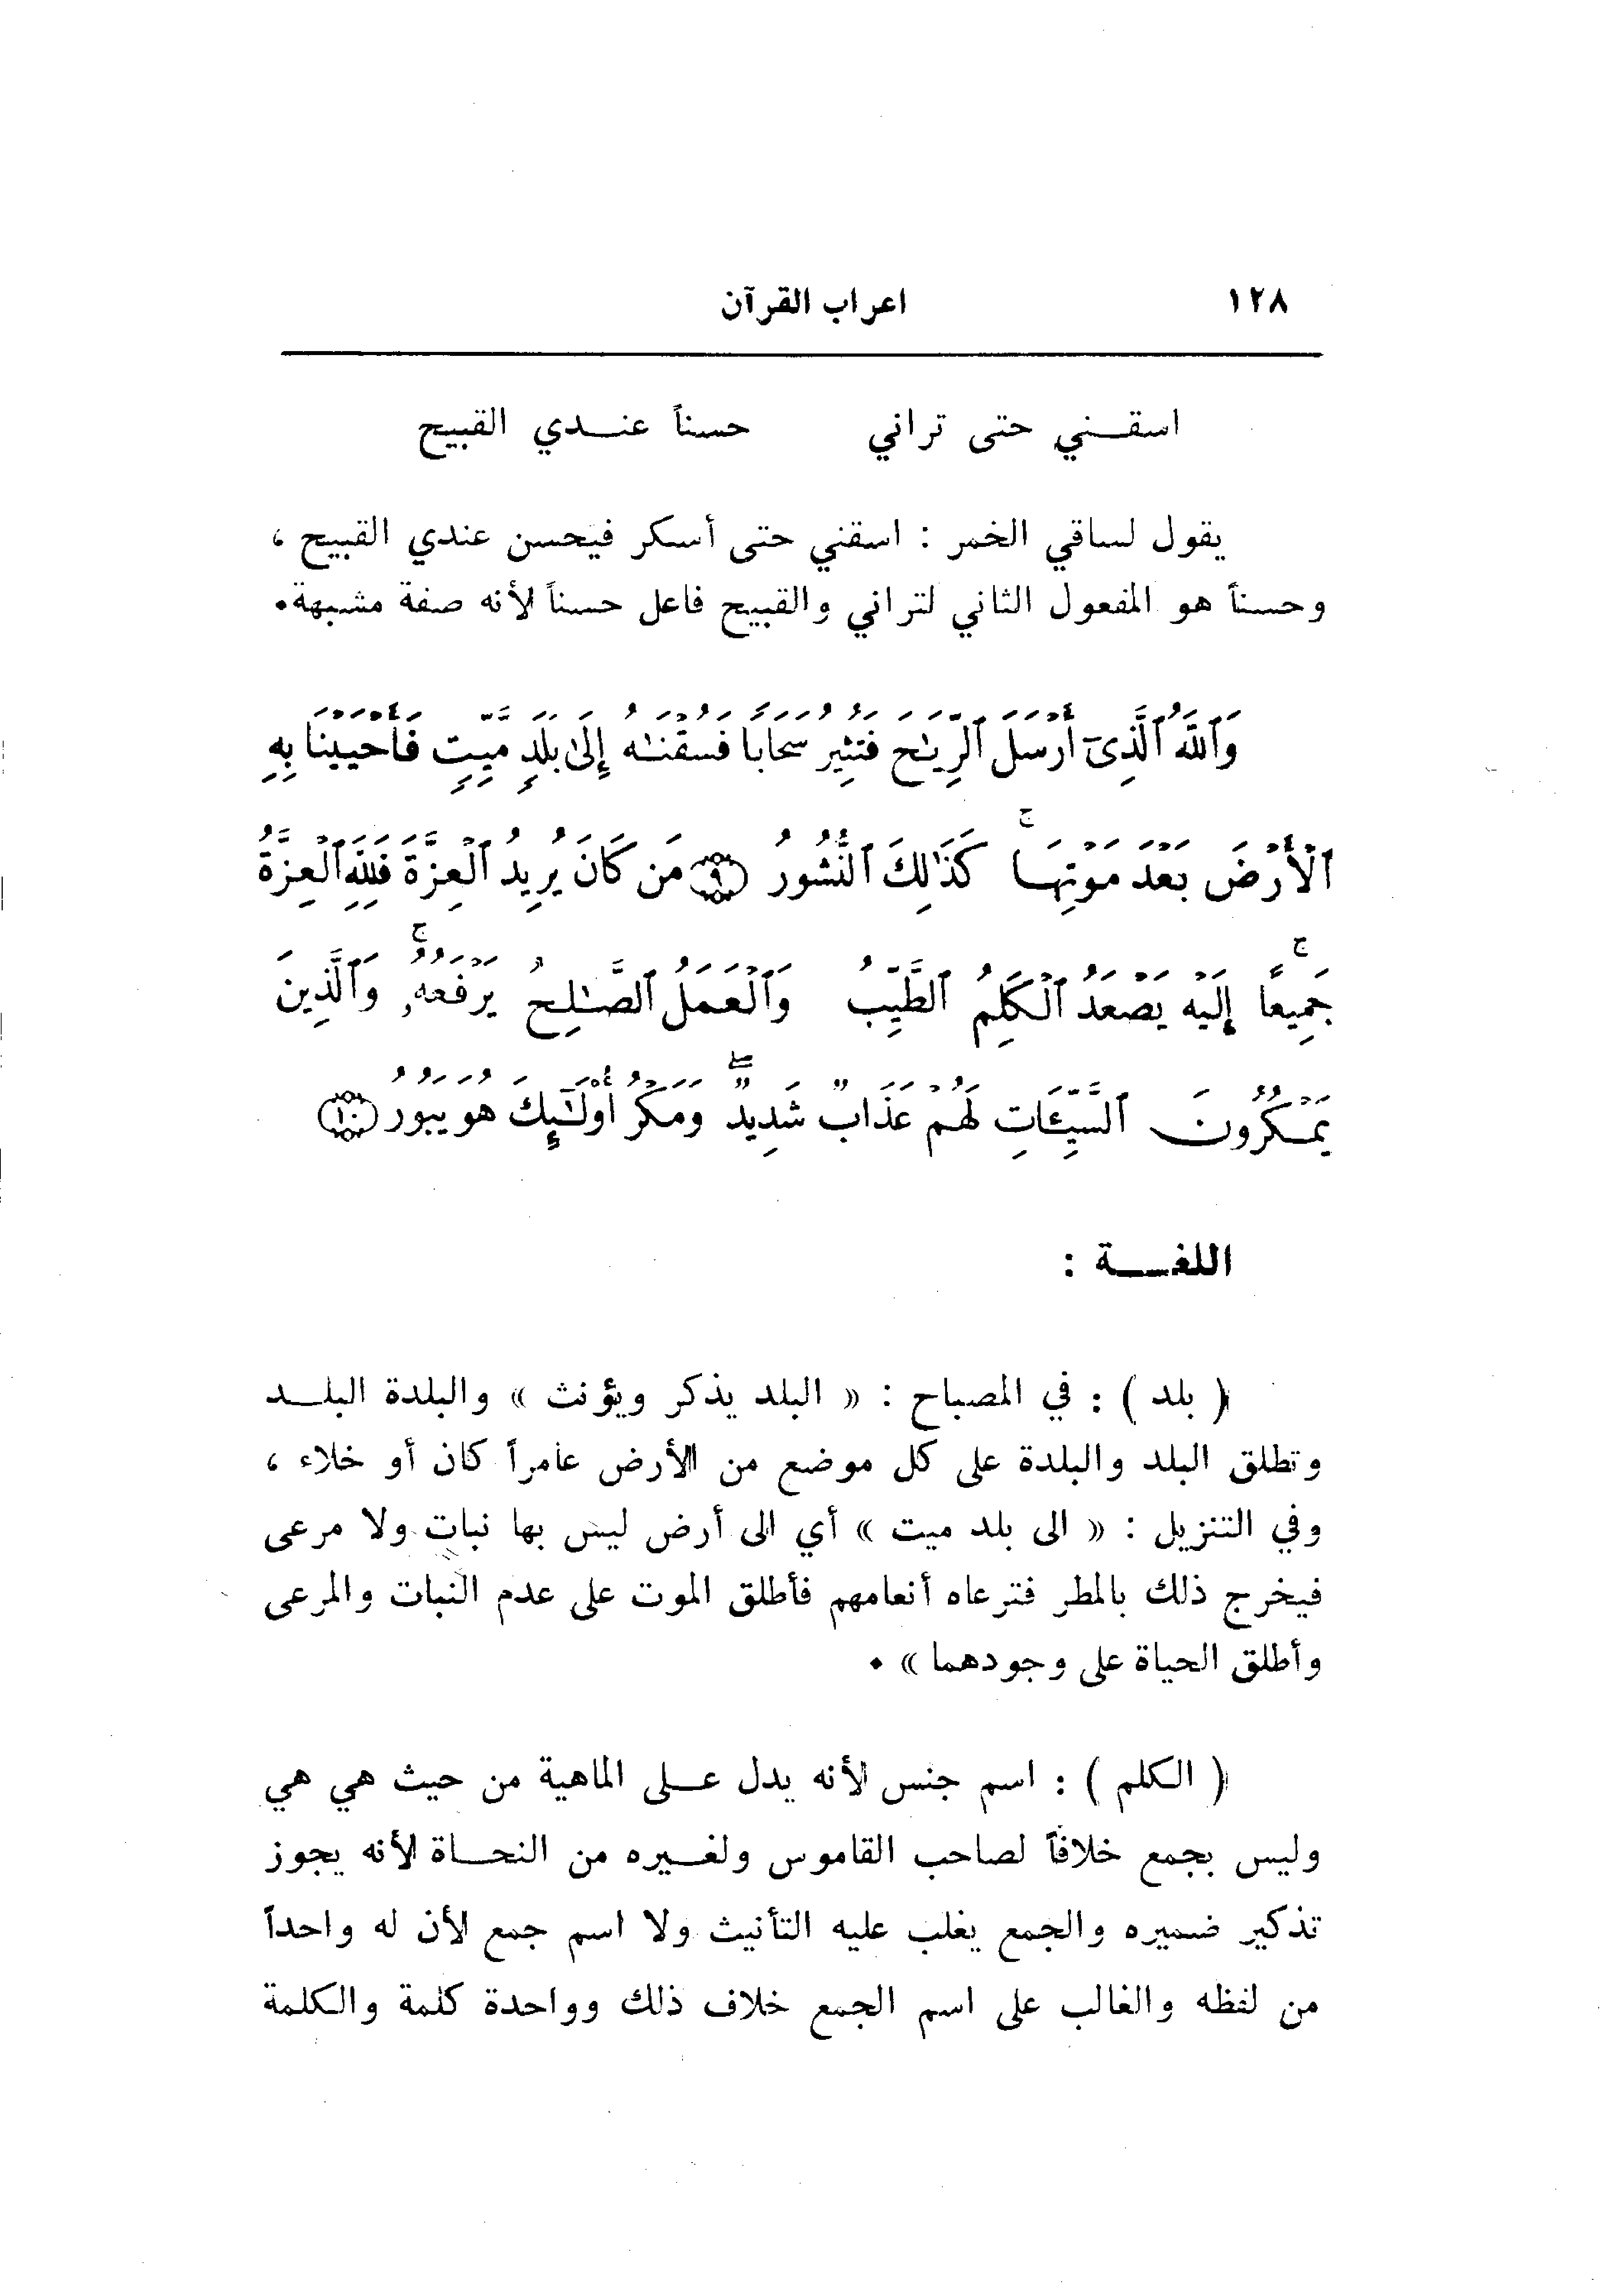 ١٢٨ اعراب القرآن
اسقـــني حتى تراني حسناً عنـــدي القبيح
يقول لساقي الخمر : اسقني حتى أسكر فيحسن عندي القبيح ،
وحسناً هو المفعول الثاني لتراني والقبيح فاعل حسناً لأنه صفة مشبهة.
وَٱللَّهُ ٱلَّذِىٓ أَرْسَلَ ٱلرِّيَـٰحَ فَتُثِيرُ سَحَابًا فَسُقْنَـٰهُ إِلَىٰ بَلَدٍ مَّيِّتٍ فَأَحْيَيْنَا بِهِ
ٱلْأَرْضَ بَعْدَ مَوْتِهَا ۚ كَذَٰلِكَ ٱلنُّشُورُ ﴿٩﴾ مَن كَانَ يُرِيدُ ٱلْعِزَّةَ فَلِلَّهِ ٱلْعِزَّةُ
جَمِيعًا ۚ إِلَيْهِ يَصْعَدُ ٱلْكَلِمُ ٱلطَّيِّبُ وَٱلْعَمَلُ ٱلصَّـٰلِحُ يَرْفَعُهُۥ ۚ وَٱلَّذِينَ
يَمْكُرُونَ ٱلسَّيِّـَٔاتِ لَهُمْ عَذَابٌ شَدِيدٌ ۖ وَمَكْرُ أُو۟لَـٰٓئِكَ هُوَ يَبُورُ ﴿١٠﴾
اللغـــة :
( بلد ) : في المصباح : « البلد يذكر ويؤنث » والبلدة البلـــد
وتطلق البلد والبلدة على كل موضع من الأرض عامراً كان أو خلاء ،
وفي التنزيل : « الى بلد ميت » أي الى أرض ليس بها نبات ولا مرعى
فيخرج ذلك بالمطر فترعاه أنعامهم فأطلق الموت على عدم النبات والمرعى
وأطلق الحياة على وجودهما » .
( الكلم ) : اسم جنس لأنه يدل عـــلى الماهية من حيث هي هي
وليس بجمع خلافاً لصاحب القاموس ولغـــيره من النحـــاة لأنه يجوز
تذكير ضميره والجمع يغلب عليه التأنيث ولا اسم جمع لأن له واحداً
من لفظه والغالب على اسم الجمع خلاف ذلك وواحدة كلمة والكلمة